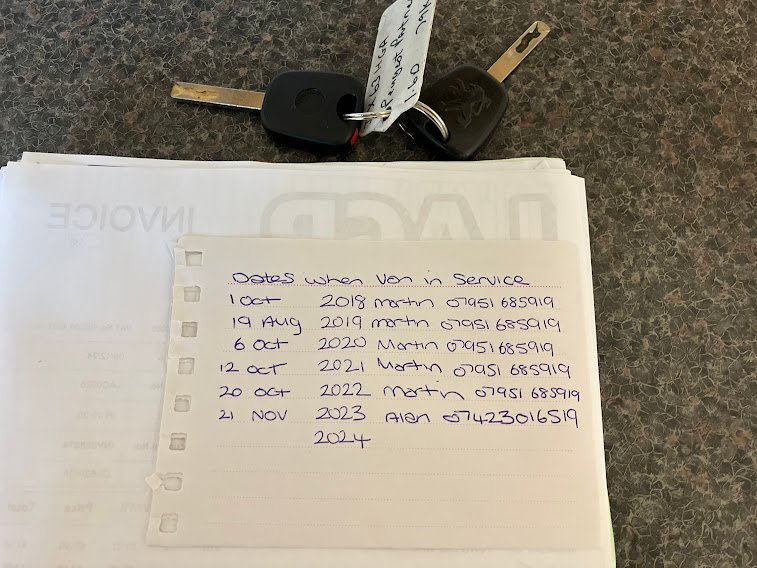 Peugeot Partner
1.60 79K
INVOICE
Dates when Van in Service
1 Oct 2018 Martin 07951 685919
19 Aug 2019 Martin 07951 685919
6 Oct 2020 Martin 07951 685919
12 Oct 2021 Martin 07951 685919
20 Oct 2022 Martin 07951 685919
21 NOV 2023 Alan 07423016519
2024